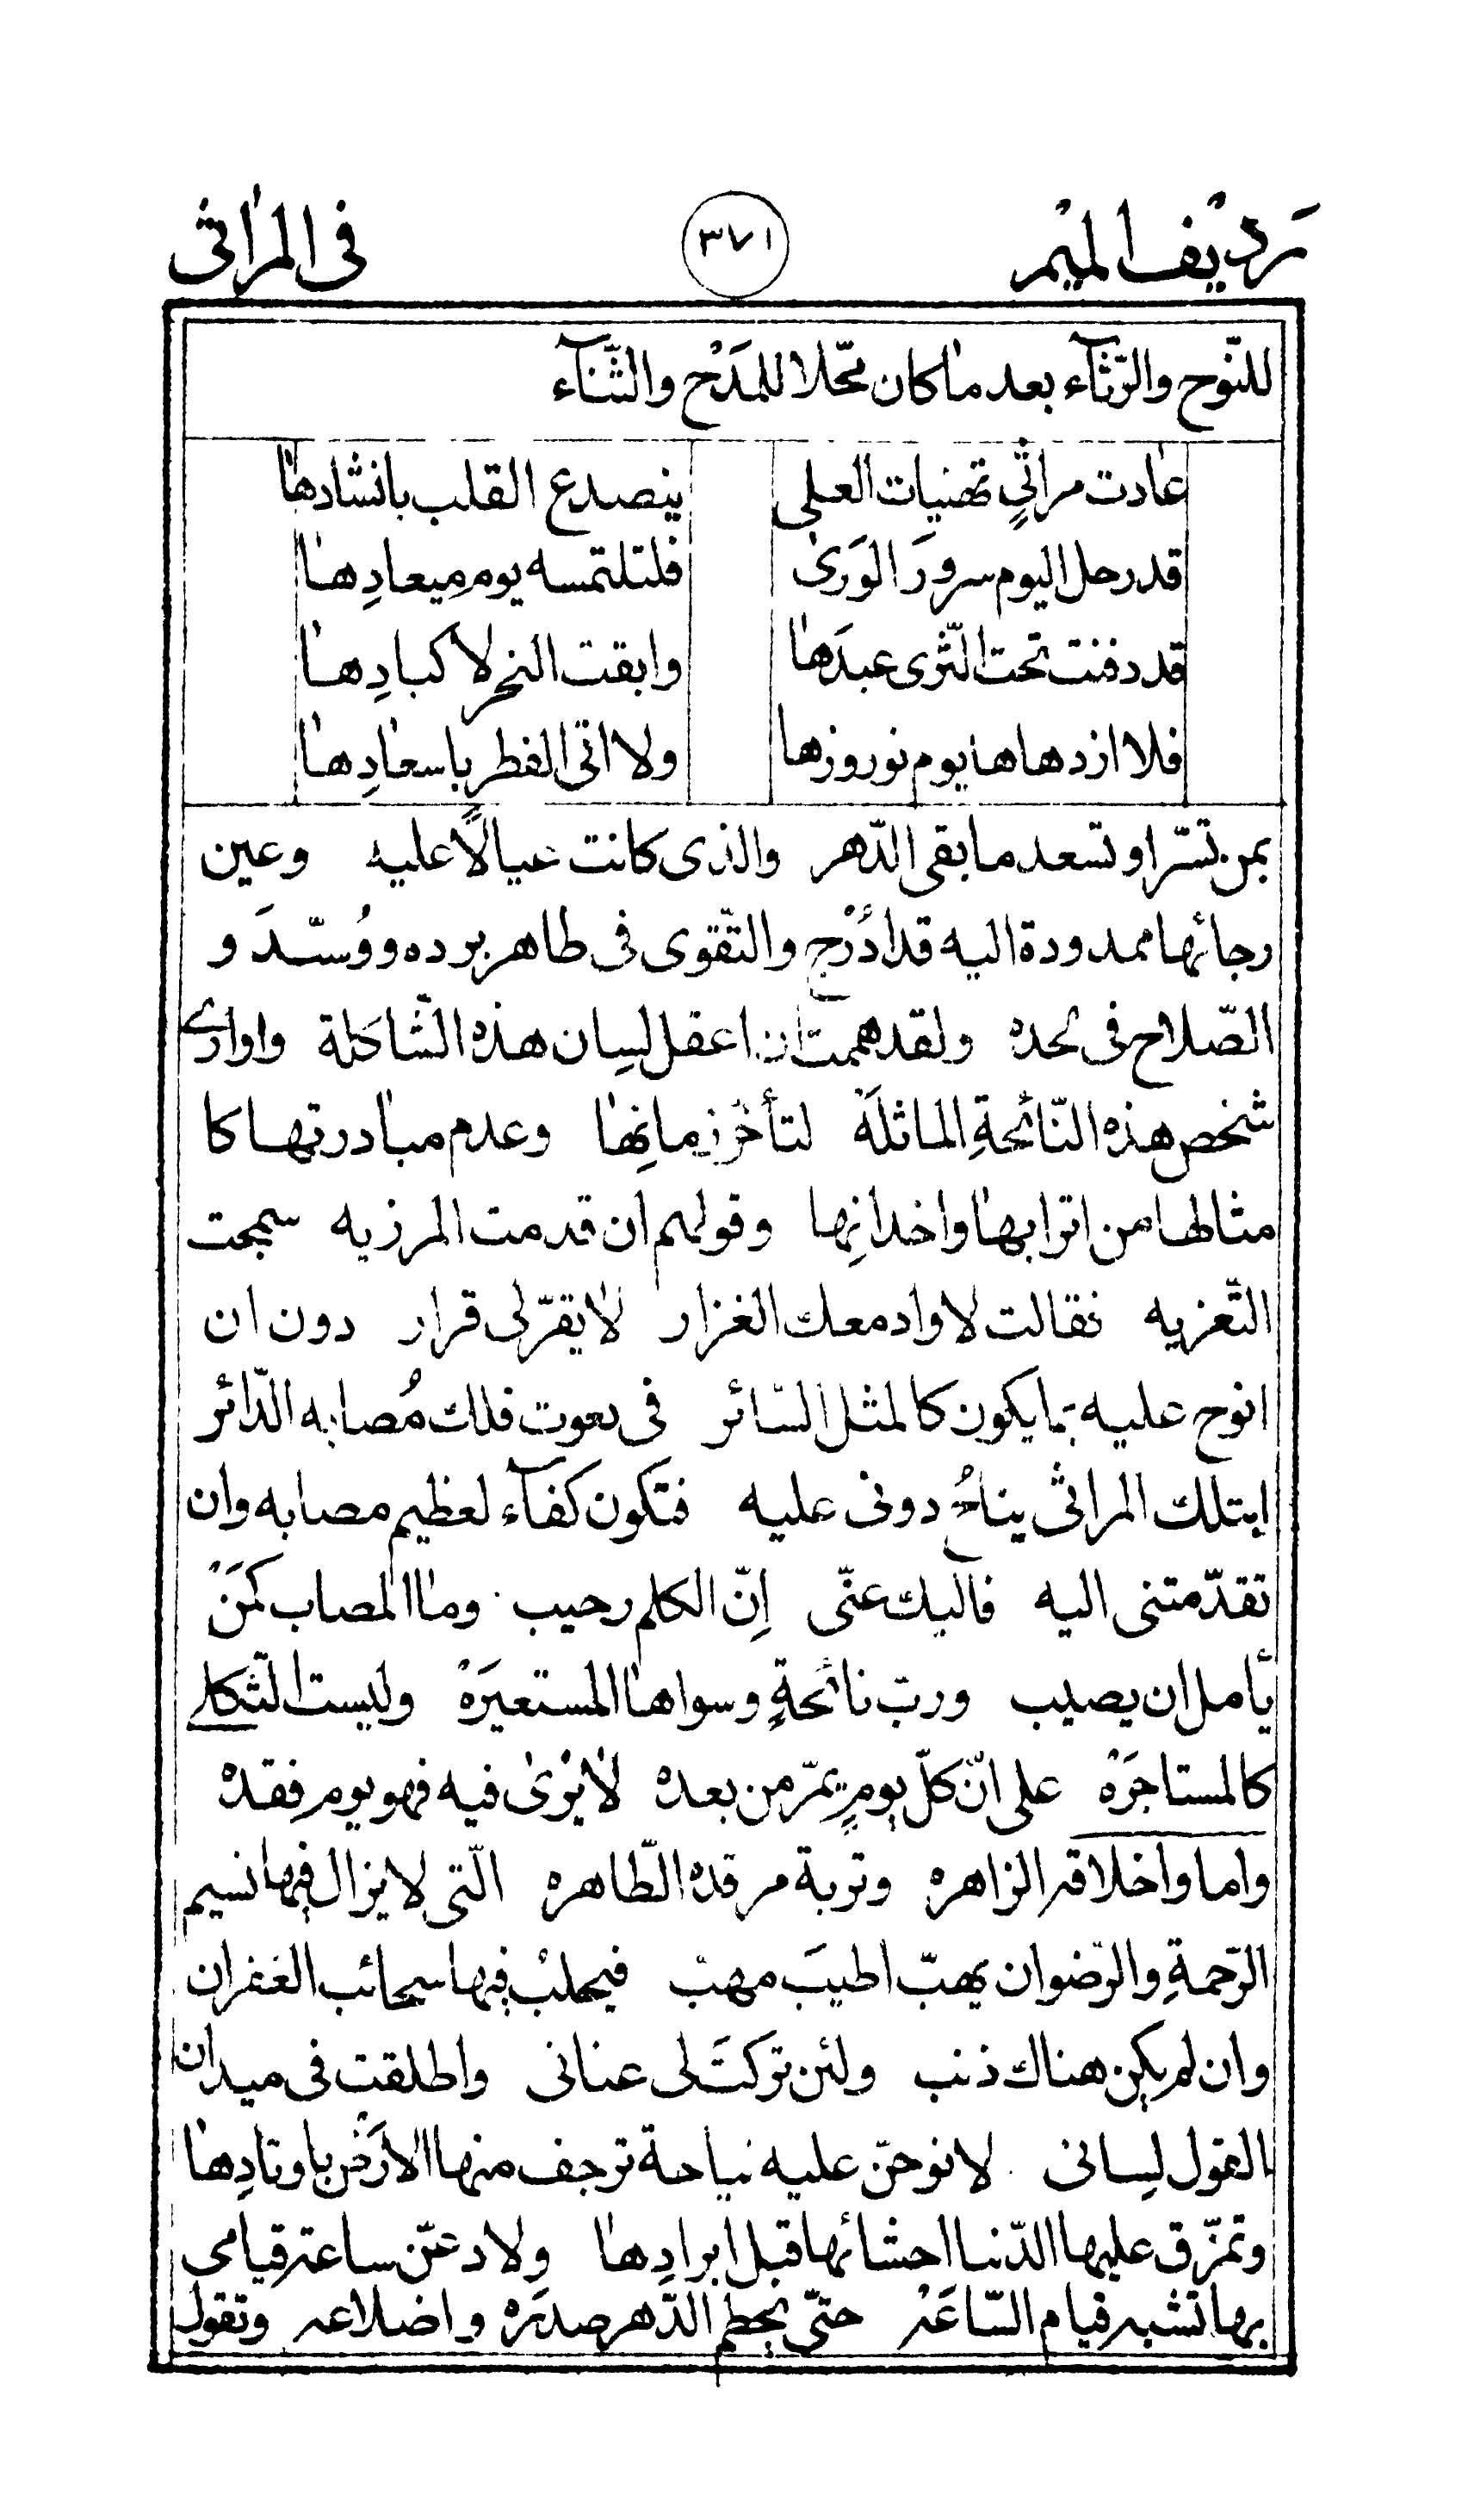 رديف الميم ٣٧١ فى المراثى
للنّوح والرّثآء بعد ما كان محّلا للمَدْح والثّنآء
عادت مراثٍي تهنيات العلى ينصدع القلب بانشادها
قد رحل اليوم سرورَ الوَرى فلتلتمسه يوم مِيعادِها
قد دفنت تحت الثّرى عبدَها وابقت النحر لاكبادِها
فلا ازدهاها يوم نوروزها ولا اتى الفطر باسعادِها
بمن تسّر او تسعد ما بقى الدّهر والذى كانت عيالًا عليه وعين
رجائها ممدودة اليه قد ادُرْج والتّقوى فى طاهر برده ووُسّدَ و
الصّلاح فى لحده ولقد هممت ان اعقل لسِان هذه الشّاكلة واوارى
شخص هذه النّائحةِ الماثلَة لتأخّر زمانِها وعدم مبادرتها كا
مثالها من اترابها واخدانِها وقولهم ان قدمت المرزيه سمجت
التّعزيه فقالت لا وادمعك الغزار لا يقرّ لى قرار دون ان
انوح عليه بما يكون كالمثل السّائر فى نعوت فلك مُصابه الدّائر
ابتلك المراثى يناحُ دونى عليه فتكون كفآء لعظيم مصابه وان
تقدّمتنى اليه فاليك عنّى إنّ الكلم رحيب وما المصاب كمَنْ
يأمل ان يصيب ورب نائحةٍ وسواها المستعيرَهْ وليست الثّكلى
كالمستاجرَهْ على انّ كلّ يومٍ يمرّ من بعده لا يُرْى فيه فهو يوم فِقده
واما واخلاقه الزاهره وتربة مرقده الطّاهره الّتى لا يزال فيها نسيم
الرّحمةِ والرّضوان يهبّ اطيبَ مهبّ فيحلبُ فيها سحائب الغفران
وان لم يكن هناك ذنب ولئن تركتَ لى عنانى واطلقت فى ميدان
القول لِسانى لانوحنّ عليه نياحة ترجف منها الارَضْ باوتادِها
وتمزّق عليها الدّنيا احشائها قبل ابرادِها ولادعنّ ساعة قيامى
بها تشبه قيام السّاعَهْ حتّى يحطم الدّهر صدرَهْ واضلاعه وتقول